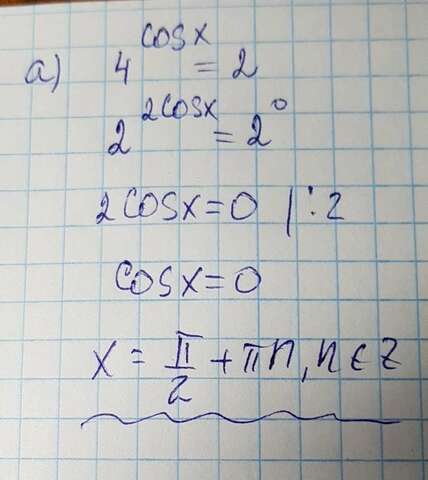 а) 4^cosx = 2
2^2cosx = 2^0
2cosx = 0 | : 2
cosx = 0
x = π/2 + πn, n ∈ Z